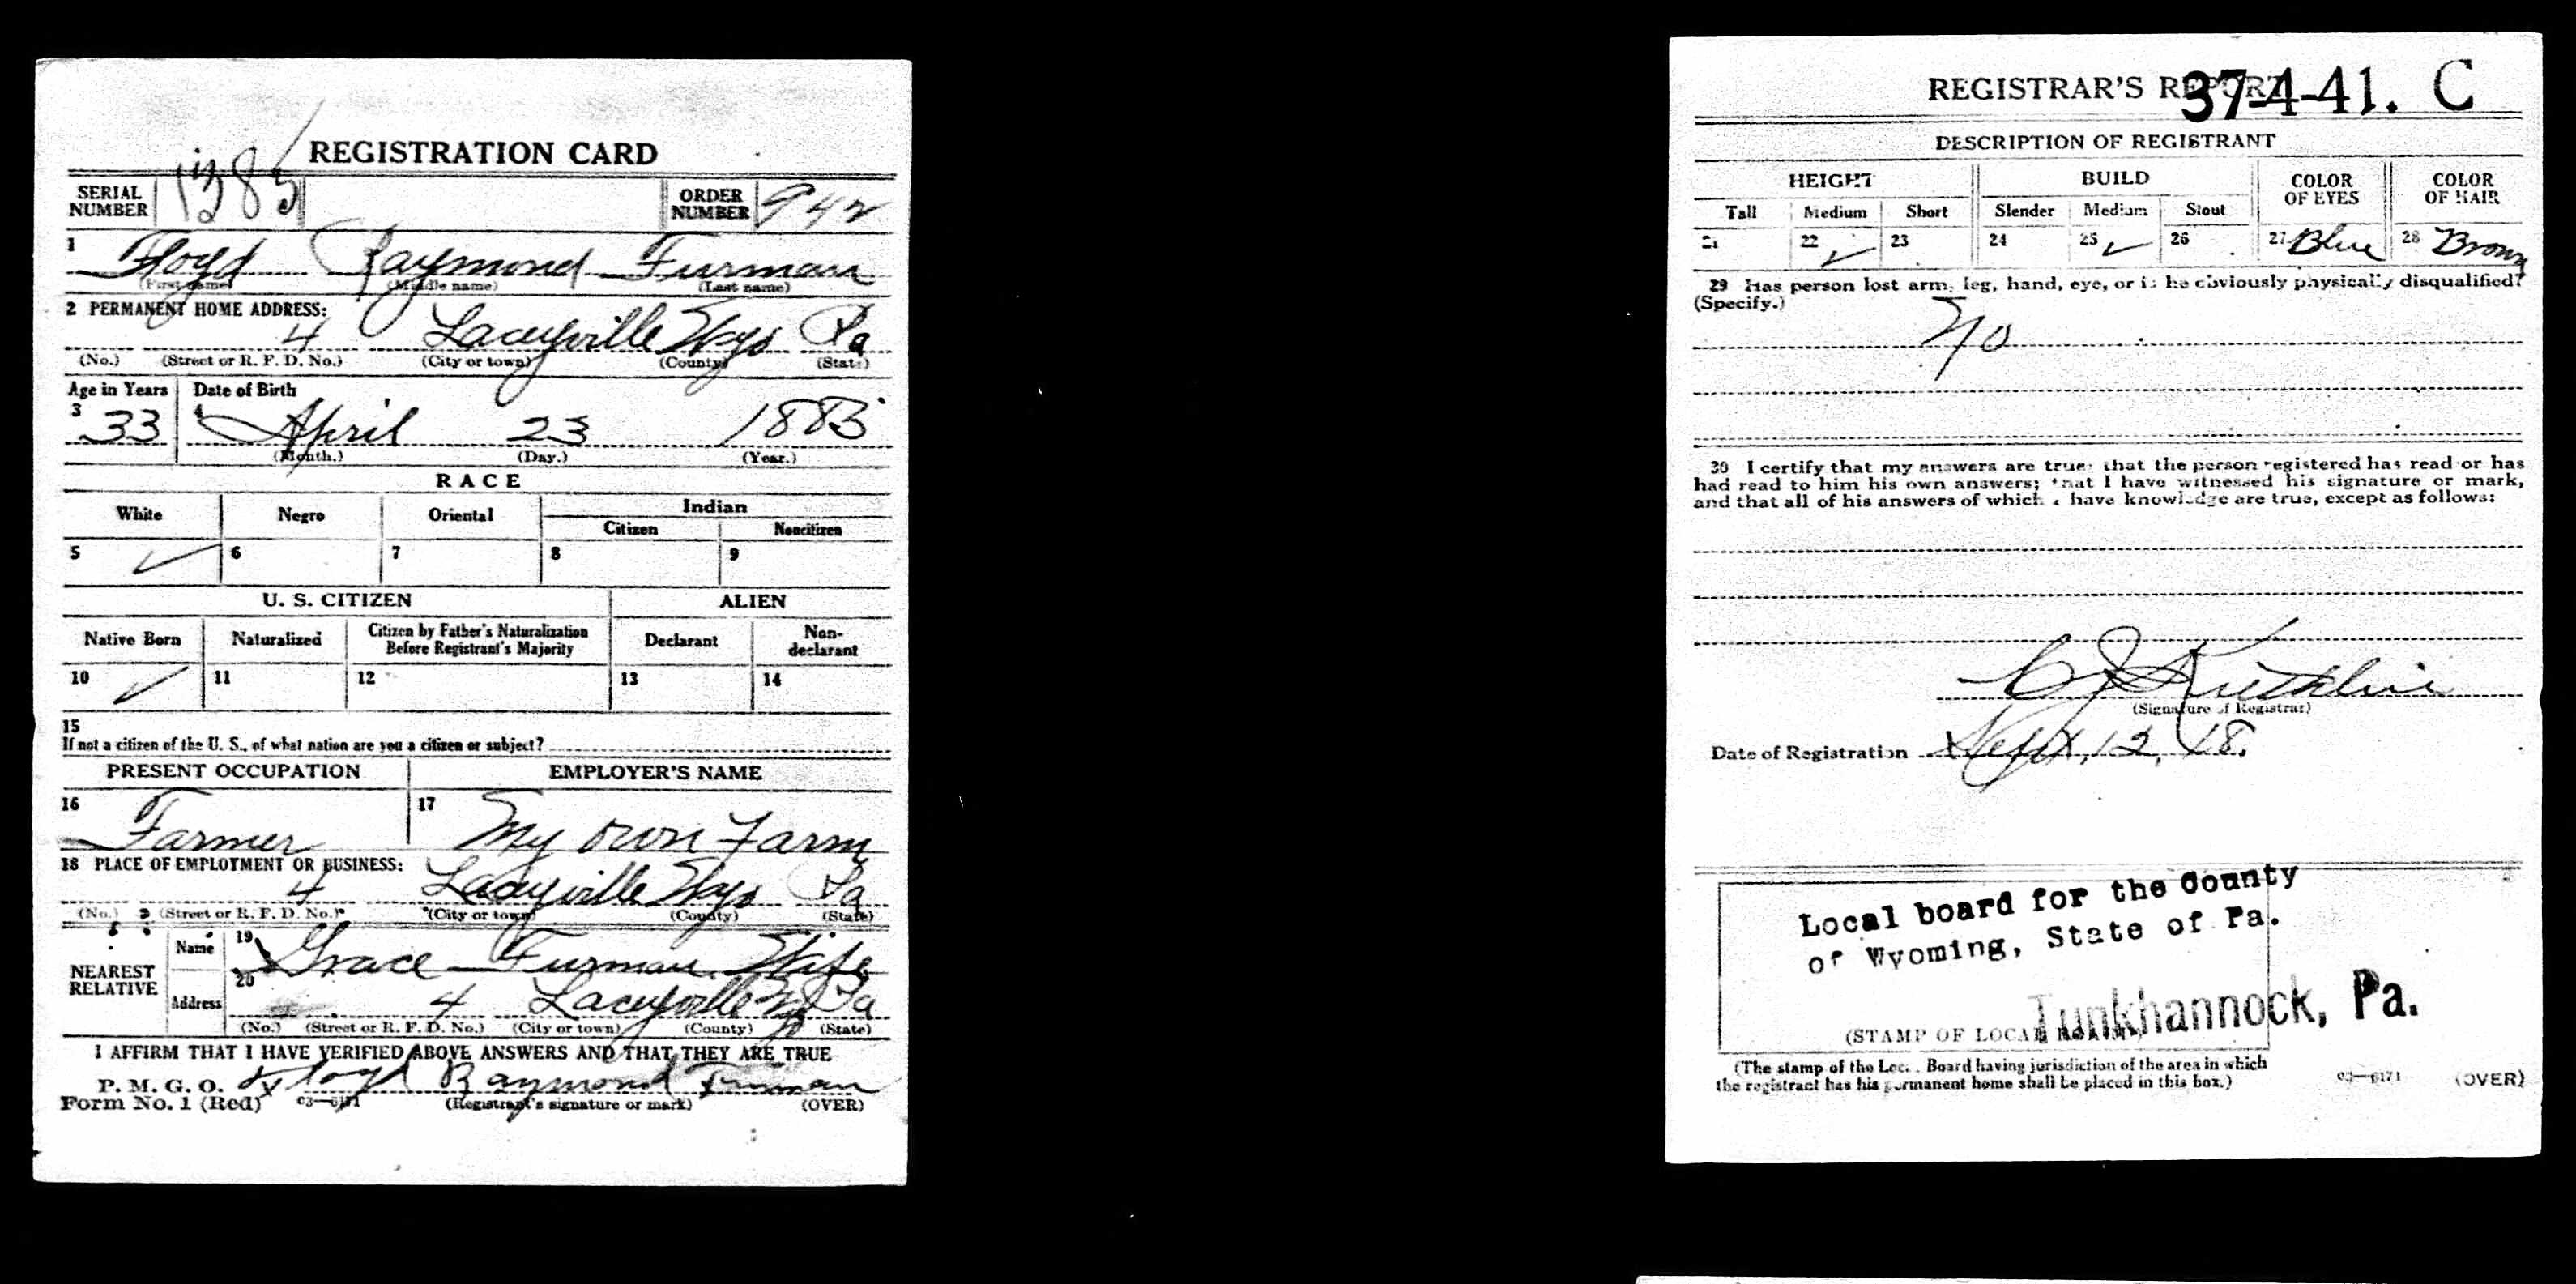 REGISTRATION CARD
SERIAL NUMBER 1385 ORDER NUMBER 942
1 Floyd Raymond Furman
(First name) (Middle name) (Last name)
2 PERMANENT HOME ADDRESS:
4 Laceyville Wyo Pa
(No.) (Street or R. F. D. No.) (City or town) (County) (State)
Age in Years Date of Birth
3 33 4 April 23 1883
(Month.) (Day.) (Year.)
RACE
White Negro Oriental Indian
Citizen Noncitizen
5 ✓ 6 7 8 9
U. S. CITIZEN ALIEN
Native Born Naturalized Citizen by Father's Naturalization Before Registrant's Majority Declarant Non-declarant
10 ✓ 11 12 13 14
15
If not a citizen of the U. S., of what nation are you a citizen or subject?
PRESENT OCCUPATION EMPLOYER'S NAME
16 Farmer 17 My own Farm
18 PLACE OF EMPLOYMENT OR BUSINESS:
4 Laceyville Wyo Pa
(No.) (Street or R. F. D. No.) (City or town) (County) (State)
NEAREST RELATIVE Name 19 Grace Furman Wife
Address 20 4 Laceyville Wyo Pa
(No.) (Street or R. F. D. No.) (City or town) (County) (State)
I AFFIRM THAT I HAVE VERIFIED ABOVE ANSWERS AND THAT THEY ARE TRUE
P. M. G. O. Floyd Raymond Furman
Form No. 1 (Red) 03—6171 (Registrant's signature or mark) (OVER)
REGISTRAR'S REPORT 37-4-41. C
DESCRIPTION OF REGISTRANT
HEIGHT BUILD COLOR OF EYES COLOR OF HAIR
Tall Medium Short Slender Medium Stout
21 22 ✓ 23 24 25 ✓ 26 27 Blue 28 Brown
29 Has person lost arm, leg, hand, eye, or is he obviously physically disqualified?
(Specify.)
No
30 I certify that my answers are true; that the person registered has read or has
had read to him his own answers; that I have witnessed his signature or mark,
and that all of his answers of which I have knowledge are true, except as follows:
(Signature of Registrar)
Date of Registration Sept, 12, 18.
Local board for the County
of Wyoming, State of Pa.
Tunkhannock, Pa.
(STAMP OF LOCAL BOARD)
(The stamp of the Local Board having jurisdiction of the area in which
the registrant has his permanent home shall be placed in this box.)
03—6171 (OVER)